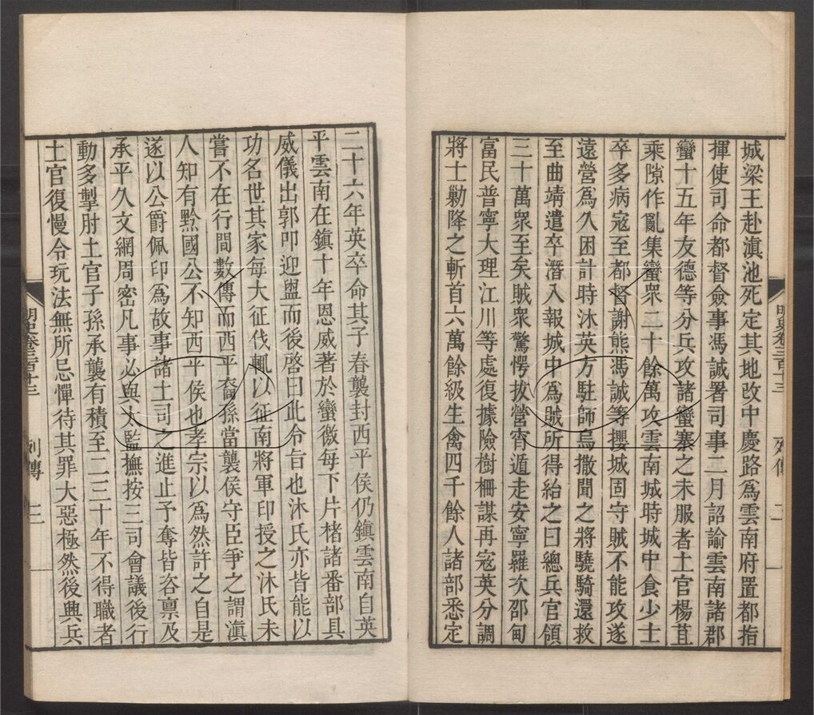 城梁王赴滇池死定其地改中慶路為雲南府置都指
揮使司命都督僉事馮誠署司事二月詔諭雲南諸郡
蠻十五年友德等分兵攻諸蠻寨之未服者土官楊苴
乘隙作亂集蠻眾二十餘萬攻雲南城時城中食少士
卒多病寇至都督謝熊馮誠等攖城固守賊不能攻遂
遠營為久困計時沐英方駐師烏撒聞之將驍騎還救
至曲靖遣卒潛入報城中為賊所得紿之曰總兵官領
三十萬眾至矣賊眾驚愕拔營宵遁走安寧羅次邵甸
富民普寧大理江川等處復據險樹柵謀再寇英分調
將士勦降之斬首六萬餘級生禽四千餘人諸部悉定
明史卷三百十三 列傳 二
二十六年英卒命其子春襲封西平侯仍鎮雲南自英
平雲南在鎮十年恩威著於蠻徼每下片楮諸番部具
威儀出郭叩迎盥而後啓曰此令旨也沐氏亦皆能以
功名世其家每大征伐輒以征南將軍印授之沐氏未
嘗不在行間數傳而西平裔孫當襲侯守臣爭之謂滇
人知有黔國公不知西平侯也孝宗以為然許之自是
遂以公爵佩印為故事諸土司之進止予奪皆咨稟及
承平久文網周密凡事必與太監撫按三司會議後行
動多掣肘土官子孫承襲有積至二三十年不得職者
土官復慢令玩法無所忌憚待其罪大惡極然後興兵
明史卷三百十三 列傳 三